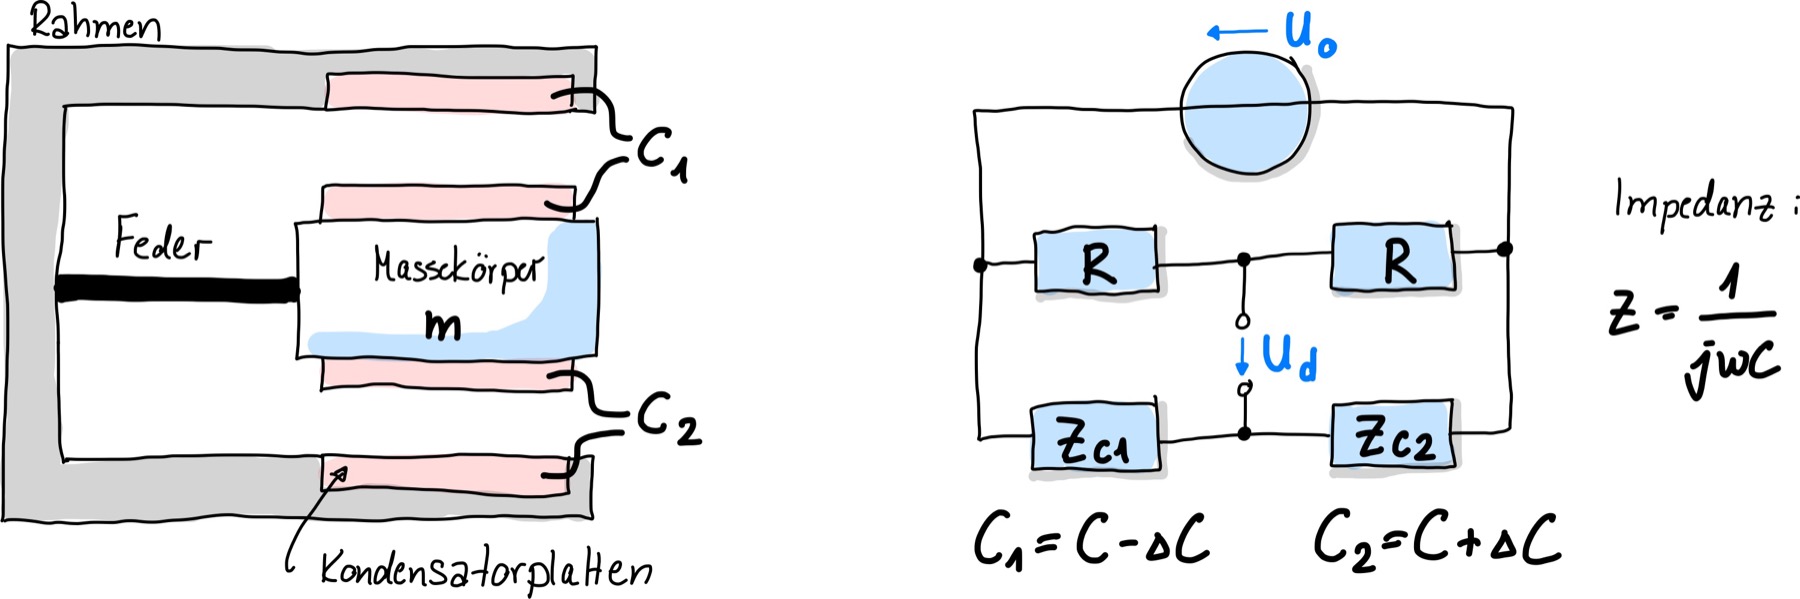 Rahmen
C₁
Feder
Massekörper
m
C₂
Kondensatorplatten
U₀
R
R
U_d
Z_C1
Z_C2
C₁ = C - ΔC
C₂ = C + ΔC
Impedanz:
Z = 1/jωC